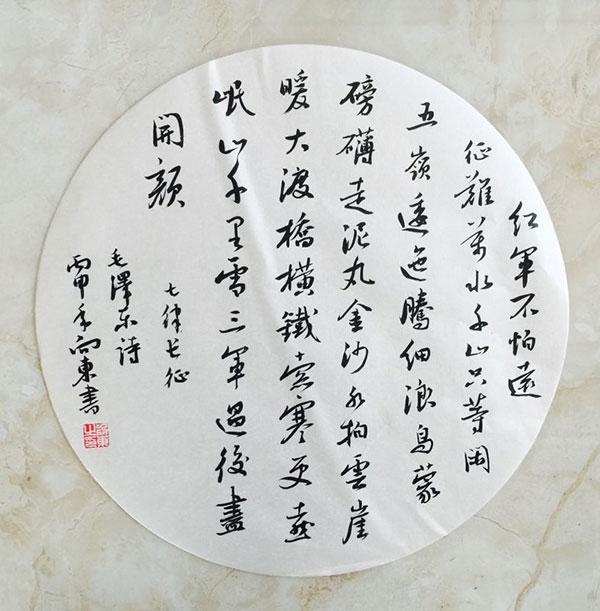 红軍不怕遠
征難萬水千山只等閑
五嶺逶迤騰細浪烏蒙
磅礴走泥丸金沙水拍雲崖
暖大渡橋橫鐵索寒更喜
岷山千里雪三軍過後盡
開顏
七律长征
毛澤东詩
丙申年向東書